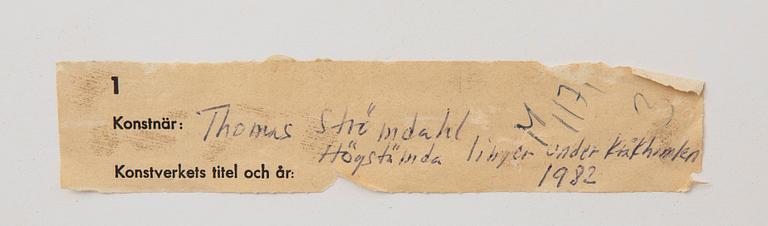 1
Konstnär: Thomas Strömdahl
M 1171
3
Högstämda linjer under kråkhimlen
Konstverkets titel och år:
1982